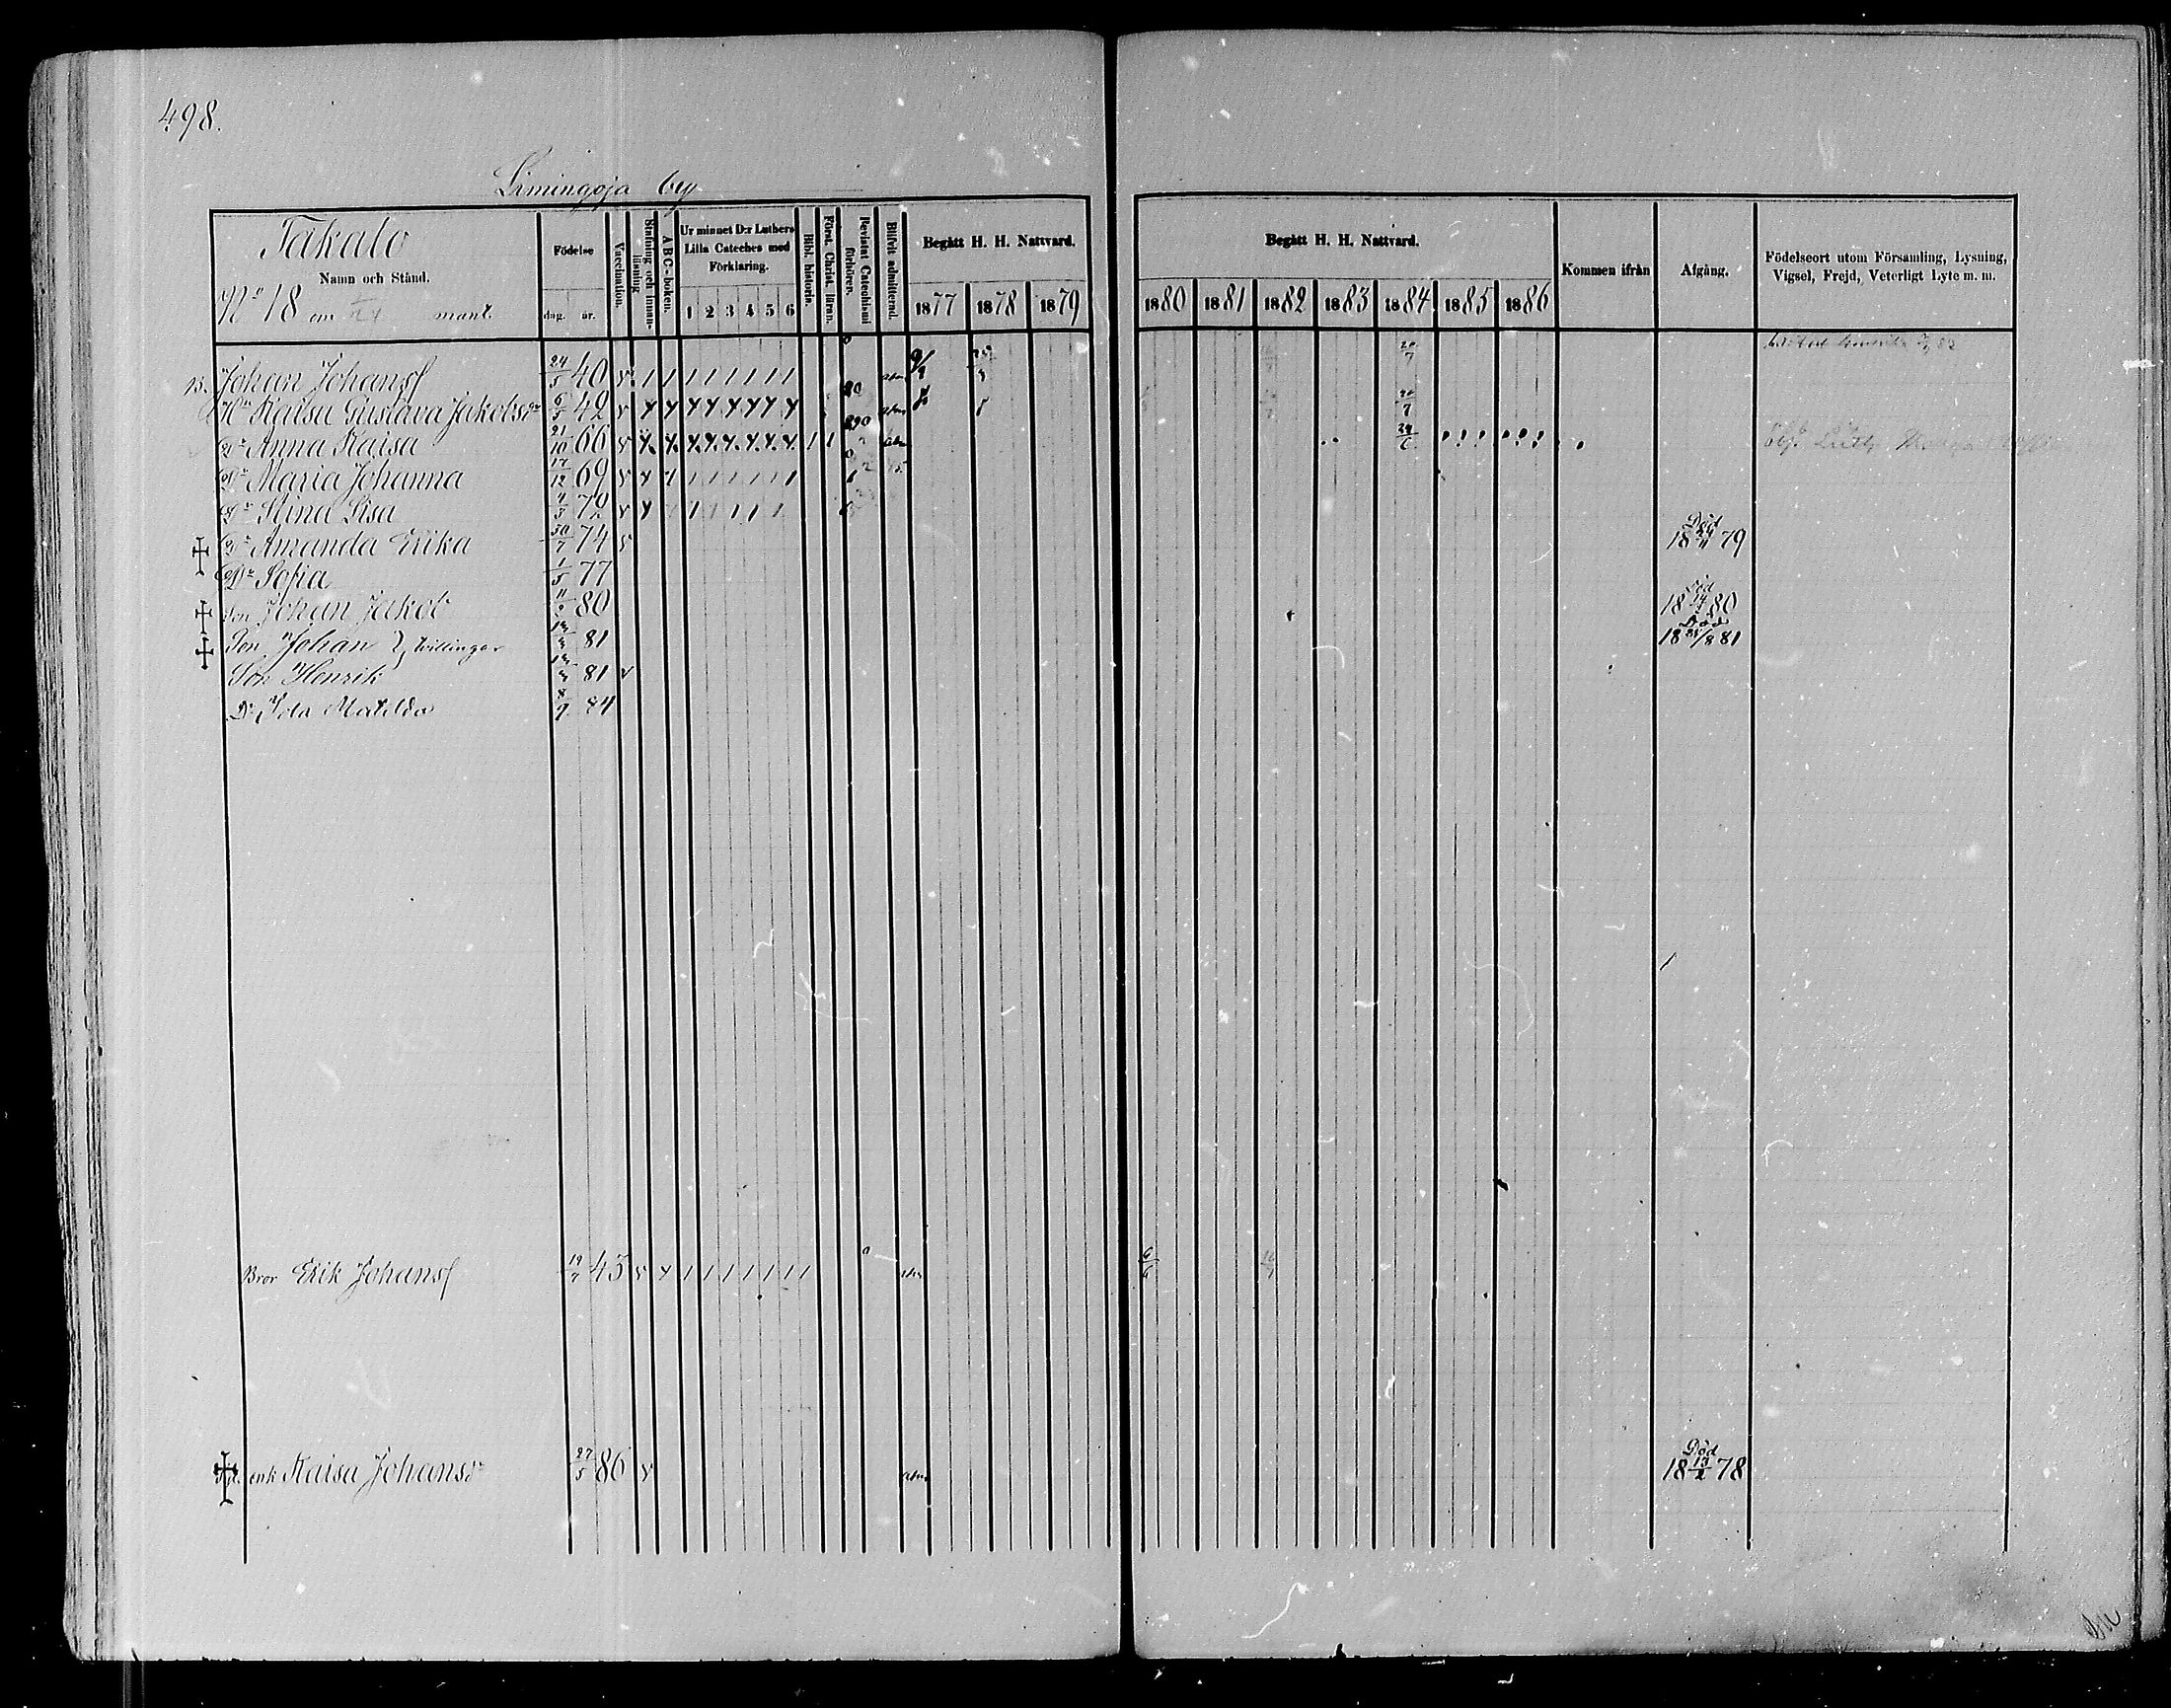 498.
Limingoja by
Takalo
Namn och Stånd.
No 18 om mant.
Födelse
dag. år.
Vaccination.
Stafning och innanläsning
ABC-boken.
Ur minnet D:r Luthers Lilla Cateches med Förklaring.
1 2 3 4 5 6
Bibl. historia.
Först. Christ. läran.
Bevistat Catechismi förhören.
Blifvit admitterad.
Begått H. H. Nattvard.
1877 1878 1879
Begått H. H. Nattvard.
1880 1881 1882 1883 1884 1885 1886
Kommen ifrån
Afgång.
Födelseort utom Församling, Lysning, Vigsel, Frejd, Veterligt Lyte m. m.
B. Johan Johanss 24/5 40 20/7
Hu Kaisa Gustava Jakobsdr 6/5 42
Dr Anna Kaisa 21/10 66 24/6
Dr Maria Johanna 17/12 69
Dr Stina Lisa 4/3 72
Dr Amanda Erika 30/7 74 Död 18 79
Dr Sofia 1/5 77
Son Johan Jakob 11/2 80 Död 18 80
Son Johan } tvillingar 81 Död 18 81
Son Henrik 81
Dr Ida Matilda 8/9 84
Bror Erik Johanss 19/7 45 adm 6/6 16/7
enk Kaisa Johansdr 27/5 86 adm Död 18 13/2 78